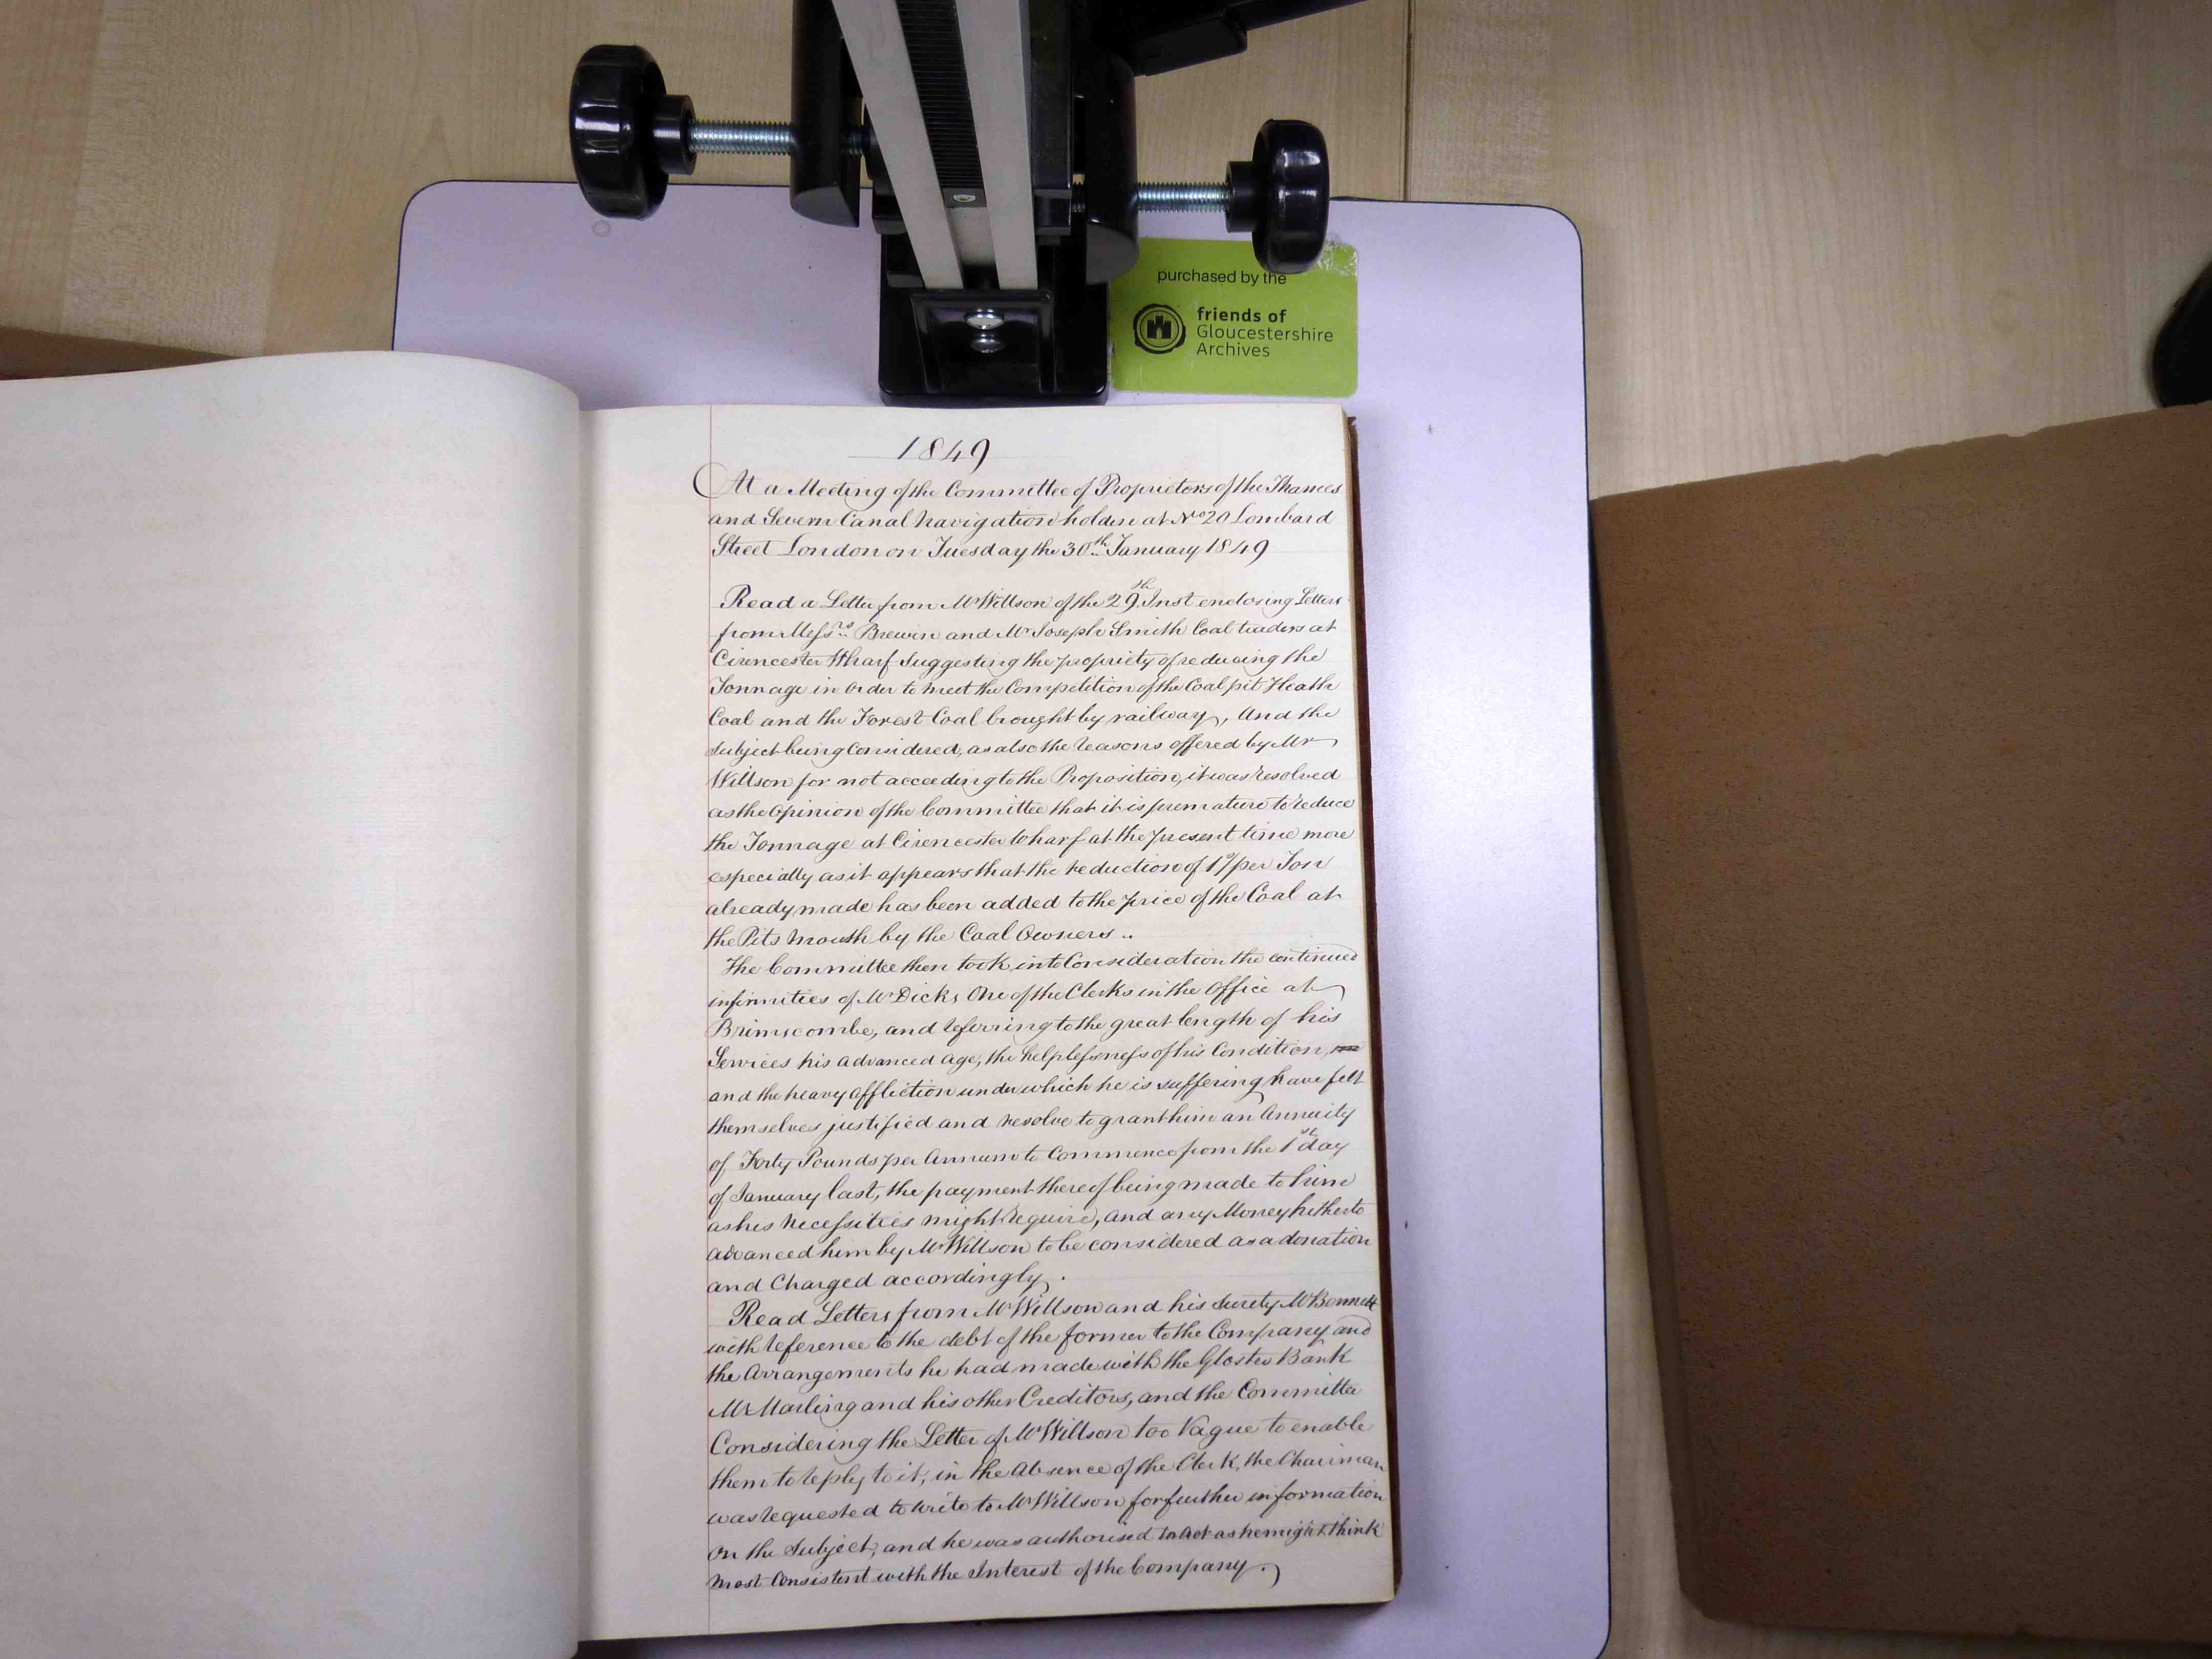 purchased by the
friends of
Gloucestershire
Archives
1849
At a Meeting of the Committee of Proprietors of the Thames
and Severn Canal Navigation holden at No 20 Lombard
Street London on Tuesday the 30th January 1849
Read a Letter from Mr Willson of the 29th Inst enclosing Letters
from Messrs Brewin and Mr Joseph Smith Coal traders at
Cirencester Wharf Suggesting the propriety of reducing the
Tonnage in Order to meet the Competition of the Coalpit Heath
Coal and the Forest Coal brought by railway, And the
subject being Considered, as also the reasons offered by Mr
Willson for not acceeding to the Proposition, it was resolved
as the Opinion of the Committee that it is premature to reduce
the Tonnage at Cirencester Wharf at the present time more
especially as it appears that the reduction of 1/ per Ton
already made has been added to the price of the Coal at
the Pits Mouth by the Coal Owners ..
The Committee then took into Consideration the continued
infirmities of Mr Dicks One of the Clerks in the Office at
Brimscombe, and referring to the great length of his
Services his advanced age, the helplessness of his Condition,
and the heavy affliction under which he is suffering have felt
themselves justified and resolve to grant him an Annuity
of Forty Pounds per Annum to Commence from the 1st day
of January last, the payment thereof being made to him
as his Necessities might require, and any Money hitherto
advanced him by Mr Willson to be considered as a donation
and Charged accordingly.
Read Letters from Mr Willson and his surety Mr Bennett
with reference to the debt of the former to the Company and
the Arrangements he had made with the Gloster Bank
Mr Marling and his other Creditors, and the Committee
Considering the Letter of Mr Willson too Vague to enable
them to reply to it, in the Absence of the Clerk, the Chairman
was requested to write to Mr Willson for further information
on the Subject, and he was authorised to Act as he might think
most Consistent with the Interest of the Company.